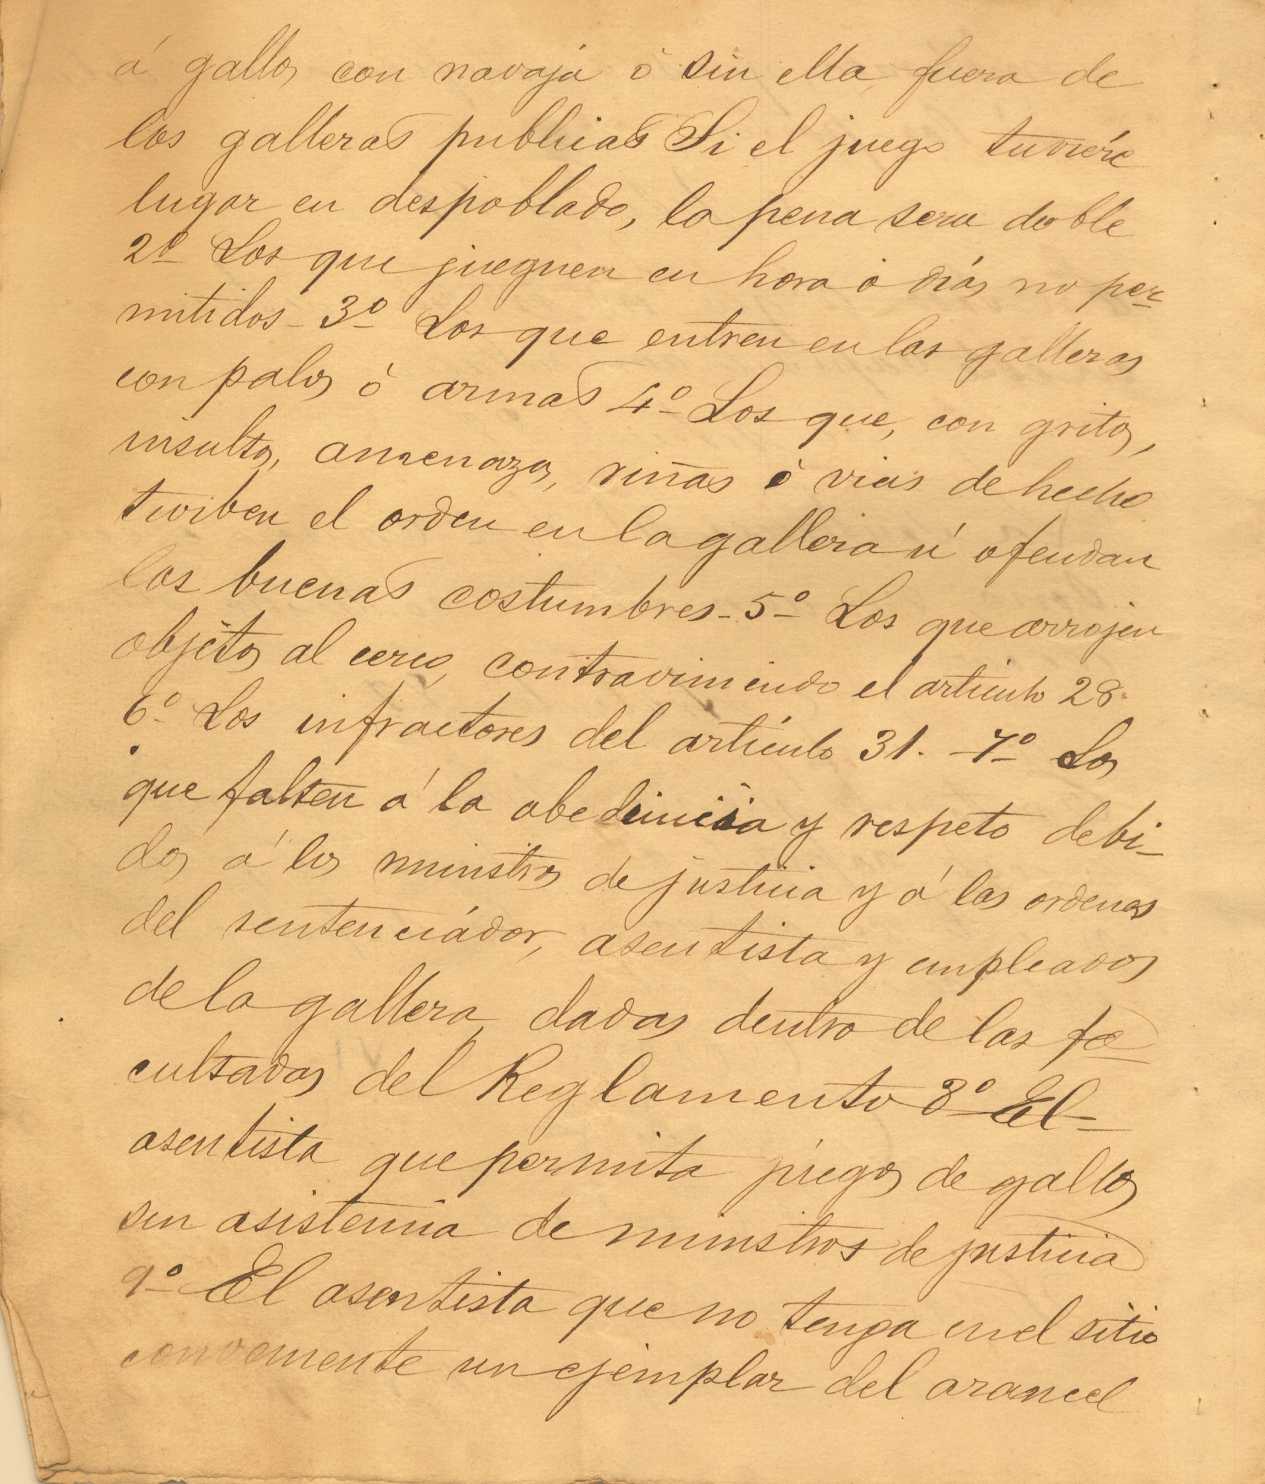 á gallos con navaja ó sin ella, fuera de
las galleras publicas Si el juego tuviere
lugar en despoblado, la pena sera doble
2º Los que jueguen en hora ó dias no per-
mitidos - 3º Los que entren en las galleras
con palos ó armas 4º Los que, con gritos,
insultos, amenazas, riñas ó vias de hecho
turiben el orden en la gallera ú ofendan
las buenas costumbres - 5º Los que arrojen
objetos al cerco, contraviniendo el articulo 28.
6º Los infractores del artículo 31. - 7º Los
que falten á la obediencia y respeto debi-
dos á los ministros de justicia y á las ordenes
del sentenciador, asentista y empleados
de la gallera, dadas dentro de las fa-
cultades del Reglamento 8º El -
asentista que permita juegos de gallos
sin asistencia de ministros de justicia
9º El asentista que no tenga en el sitio
conveniente un ejemplar del arancel